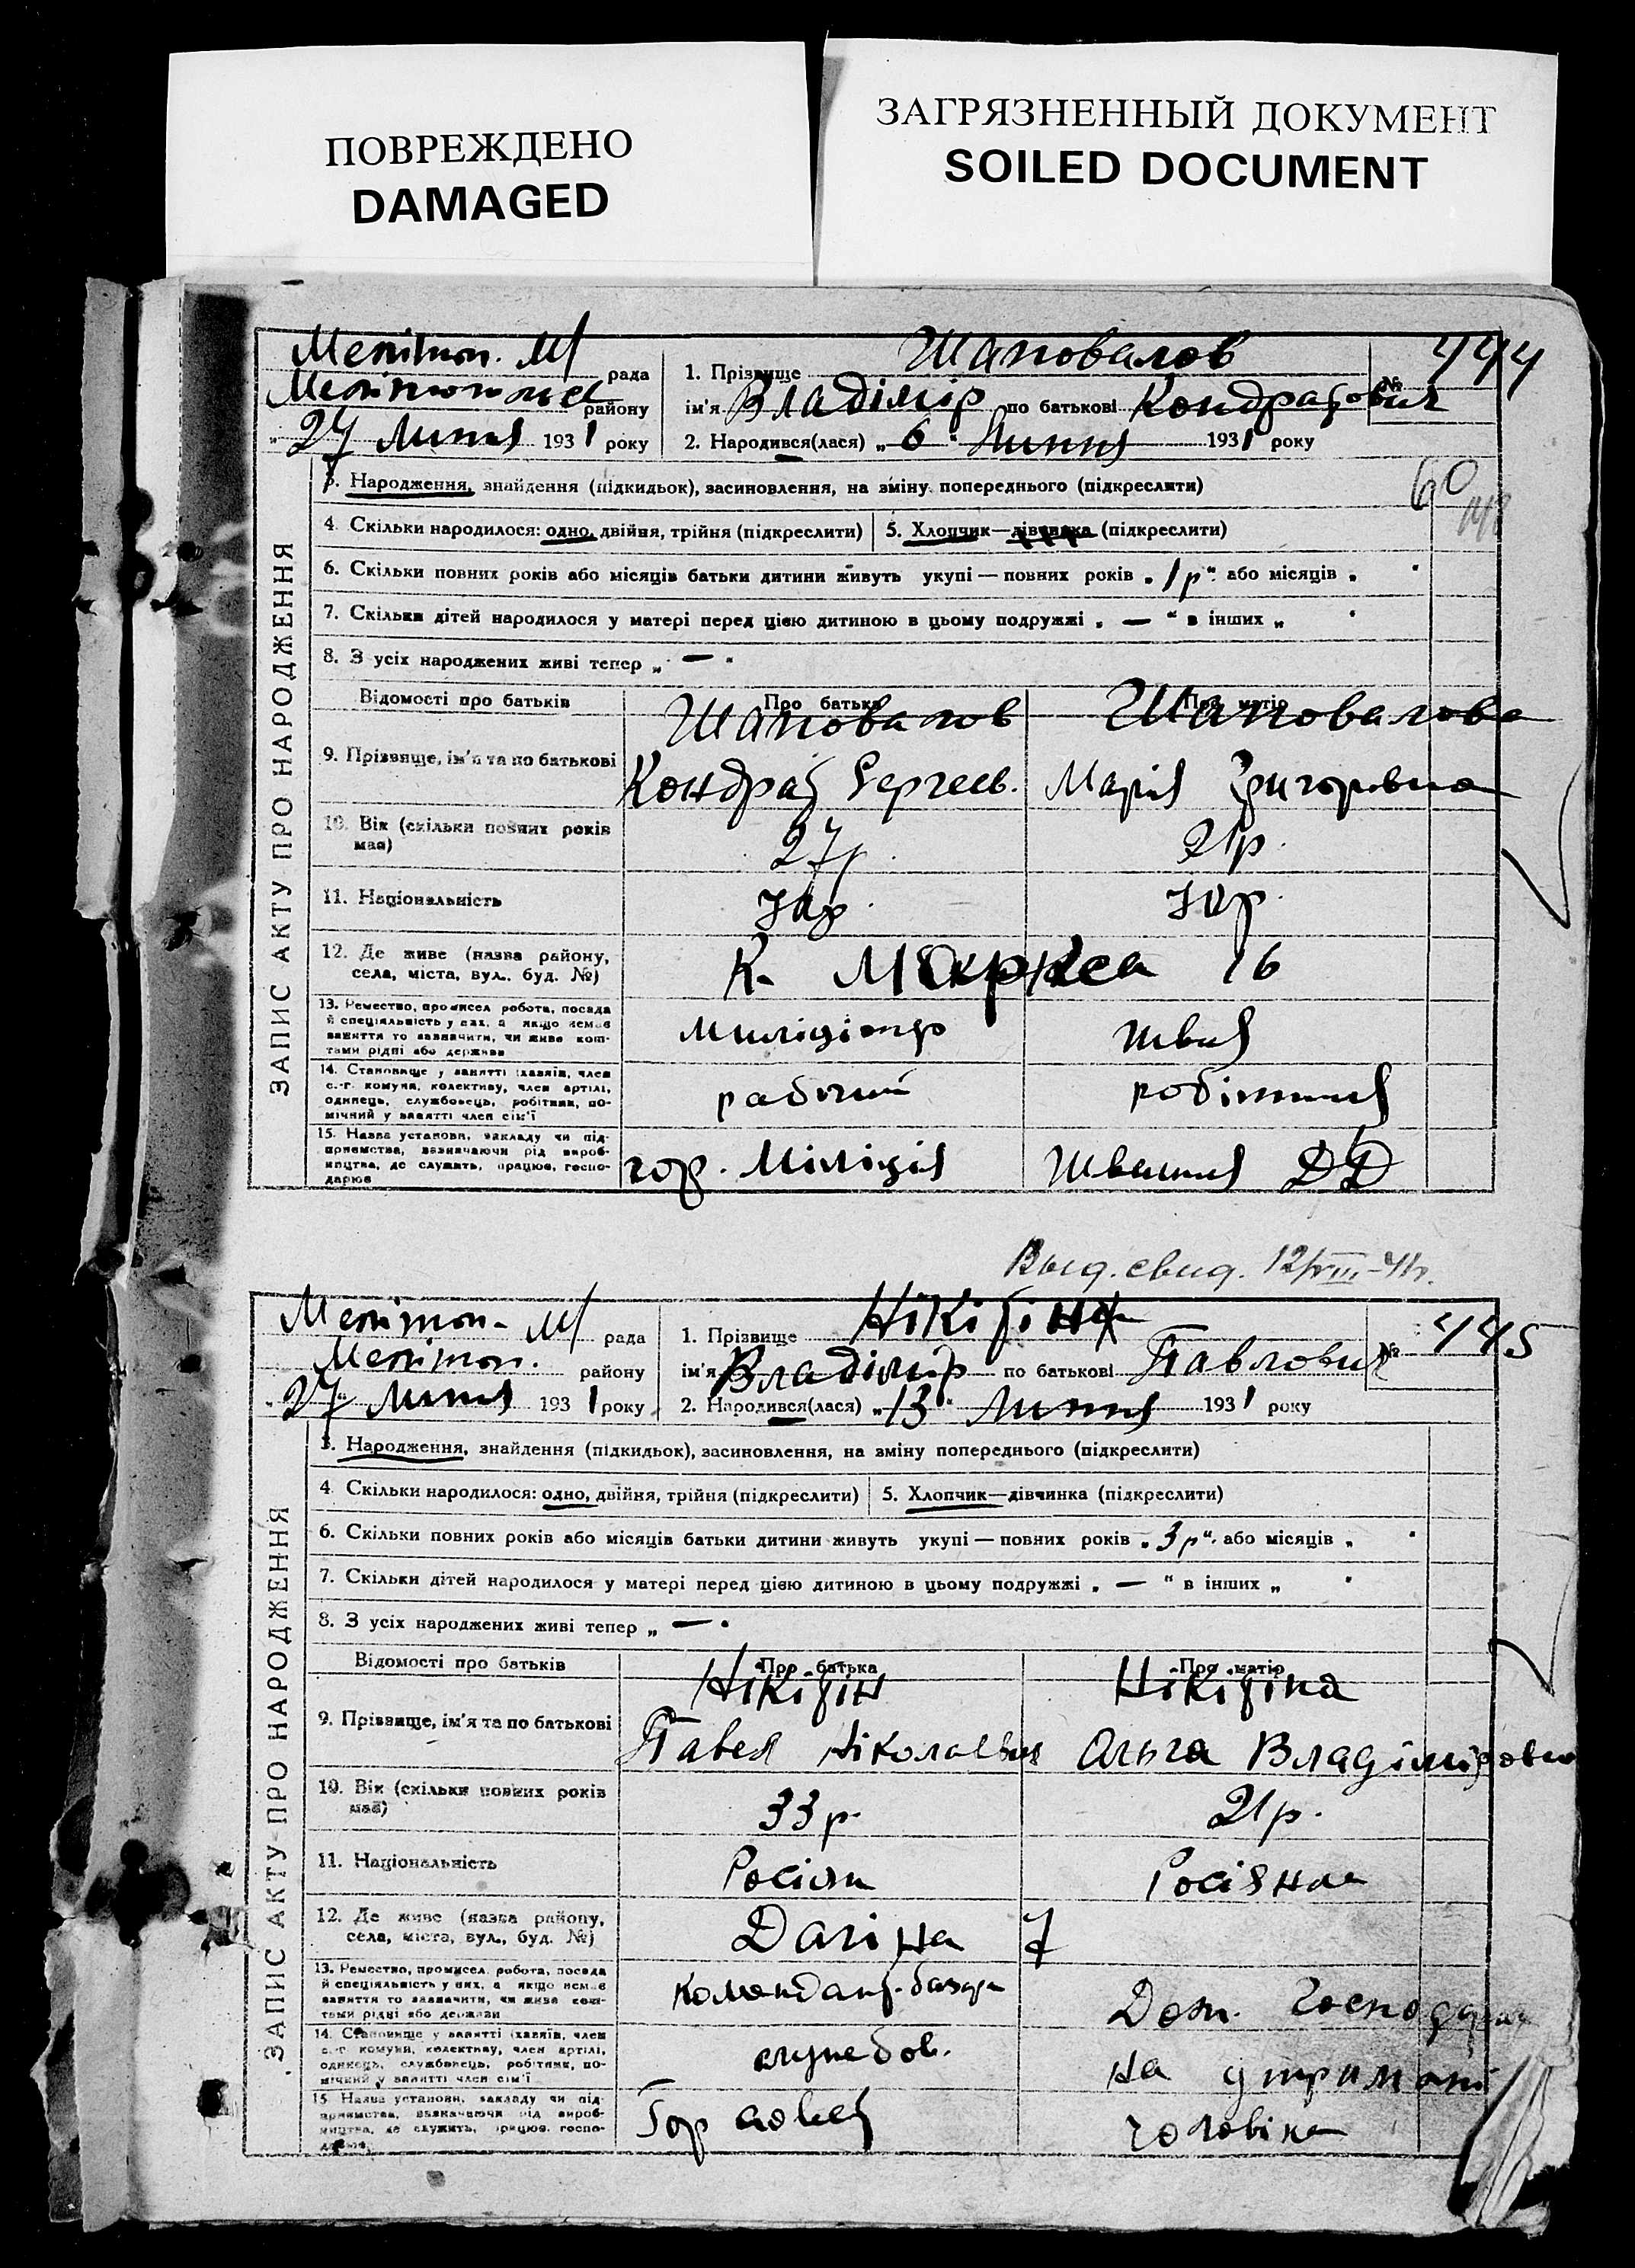 ПОВРЕЖДЕНО
DAMAGED
ЗАГРЯЗНЕННЫЙ ДОКУМЕНТ
SOILED DOCUMENT
ЗАПИС АКТУ ПРО НАРОДЖЕННЯ
Мелітоп. М/ рада
району
27 Липня 1931 року
1. Прізвище Шаповалов
№ 444
ім'я Владімір по батькові Кондратович
2. Народився(лася) „6“ Липня 1931 року
3. Народження, знайдення (підкидьок), засиновлення, на зміну попереднього (підкреслити)
60
4. Скільки народилося: одно, двійня, трійня (підкреслити) 5. Хлопчик—дівчинка (підкреслити)
6. Скільки повних років або місяців батьки дитини живуть укупі — повних років „1 р“ або місяців „
7. Скільки дітей народилося у матері перед цією дитиною в цьому подружжі „ — “ в інших „
8. З усіх народжених живі тепер „ — “
Відомості про батьків Про батька Про матір
9. Прізвище, ім'я та по батькові Шаповалов Шаповалова
Кондрат Сергеєв. Марія Григоровна
10. Вік (скільки повних років має) 27р 21р.
11. Національність Укр. Укр.
12. Де живе (назва району, села, міста, вул., буд. №) К. Маркса 16
13. Ремество, промисел, робота, посада й спеціяльність у них, а якщо немає заняття то зазначити, чи живе коштами рідні або держави міліціонер швея
14. Становище у занятті (хазяїн, член с.-г. комуни, колективу, член артілі, одинець, службовець, робітник, помічний у занятті член сім'ї рабочий робітниця
15. Назва установи, закладу чи підприємства, зазначаючи рід виробництва, де служить, працює, господарює гор. Міліція Швейния
Выд. свид. 12/VIII-41г.
ЗАПИС АКТУ ПРО НАРОДЖЕННЯ
Мелітоп. М/ рада
Мелітоп. району
27 Липня 1931 року
1. Прізвище Нікітін
№ 445
ім'я Владімір по батькові Павлович
2. Народився(лася) „13“ Липня 1931 року
3. Народження, знайдення (підкидьок), засиновлення, на зміну попереднього (підкреслити)
4. Скільки народилося: одно, двійня, трійня (підкреслити) 5. Хлопчик—дівчинка (підкреслити)
6. Скільки повних років або місяців батьки дитини живуть укупі — повних років „3 р“ або місяців „
7. Скільки дітей народилося у матері перед цією дитиною в цьому подружжі „ — “ в інших „
8. З усіх народжених живі тепер „ — “
Відомості про батьків Про батька Про матір
9. Прізвище, ім'я та по батькові Нікітін Нікітіна
Павел Ніколаевич Ольга Владіміровна
10. Вік (скільки повних років має) 33 р. 21р.
11. Національність Росіян Росіянка
12. Де живе (назва району, села, міста, вул., буд. №) 7
13. Ремество, промисел, робота, посада й спеціяльність у них, а якщо немає заняття то зазначити, чи живе коштами рідні або держави комендант базара Дом. Господарка
14. Становище у занятті (хазяїн, член с.-г. комуни, колективу, член артілі, одинець, службовець, робітник, помічний у занятті член сім'ї службов. на утриманні
15. Назва установи, закладу чи підприємства, зазначаючи рід виробництва, де служить, працює, господарює Гор совет чоловіка